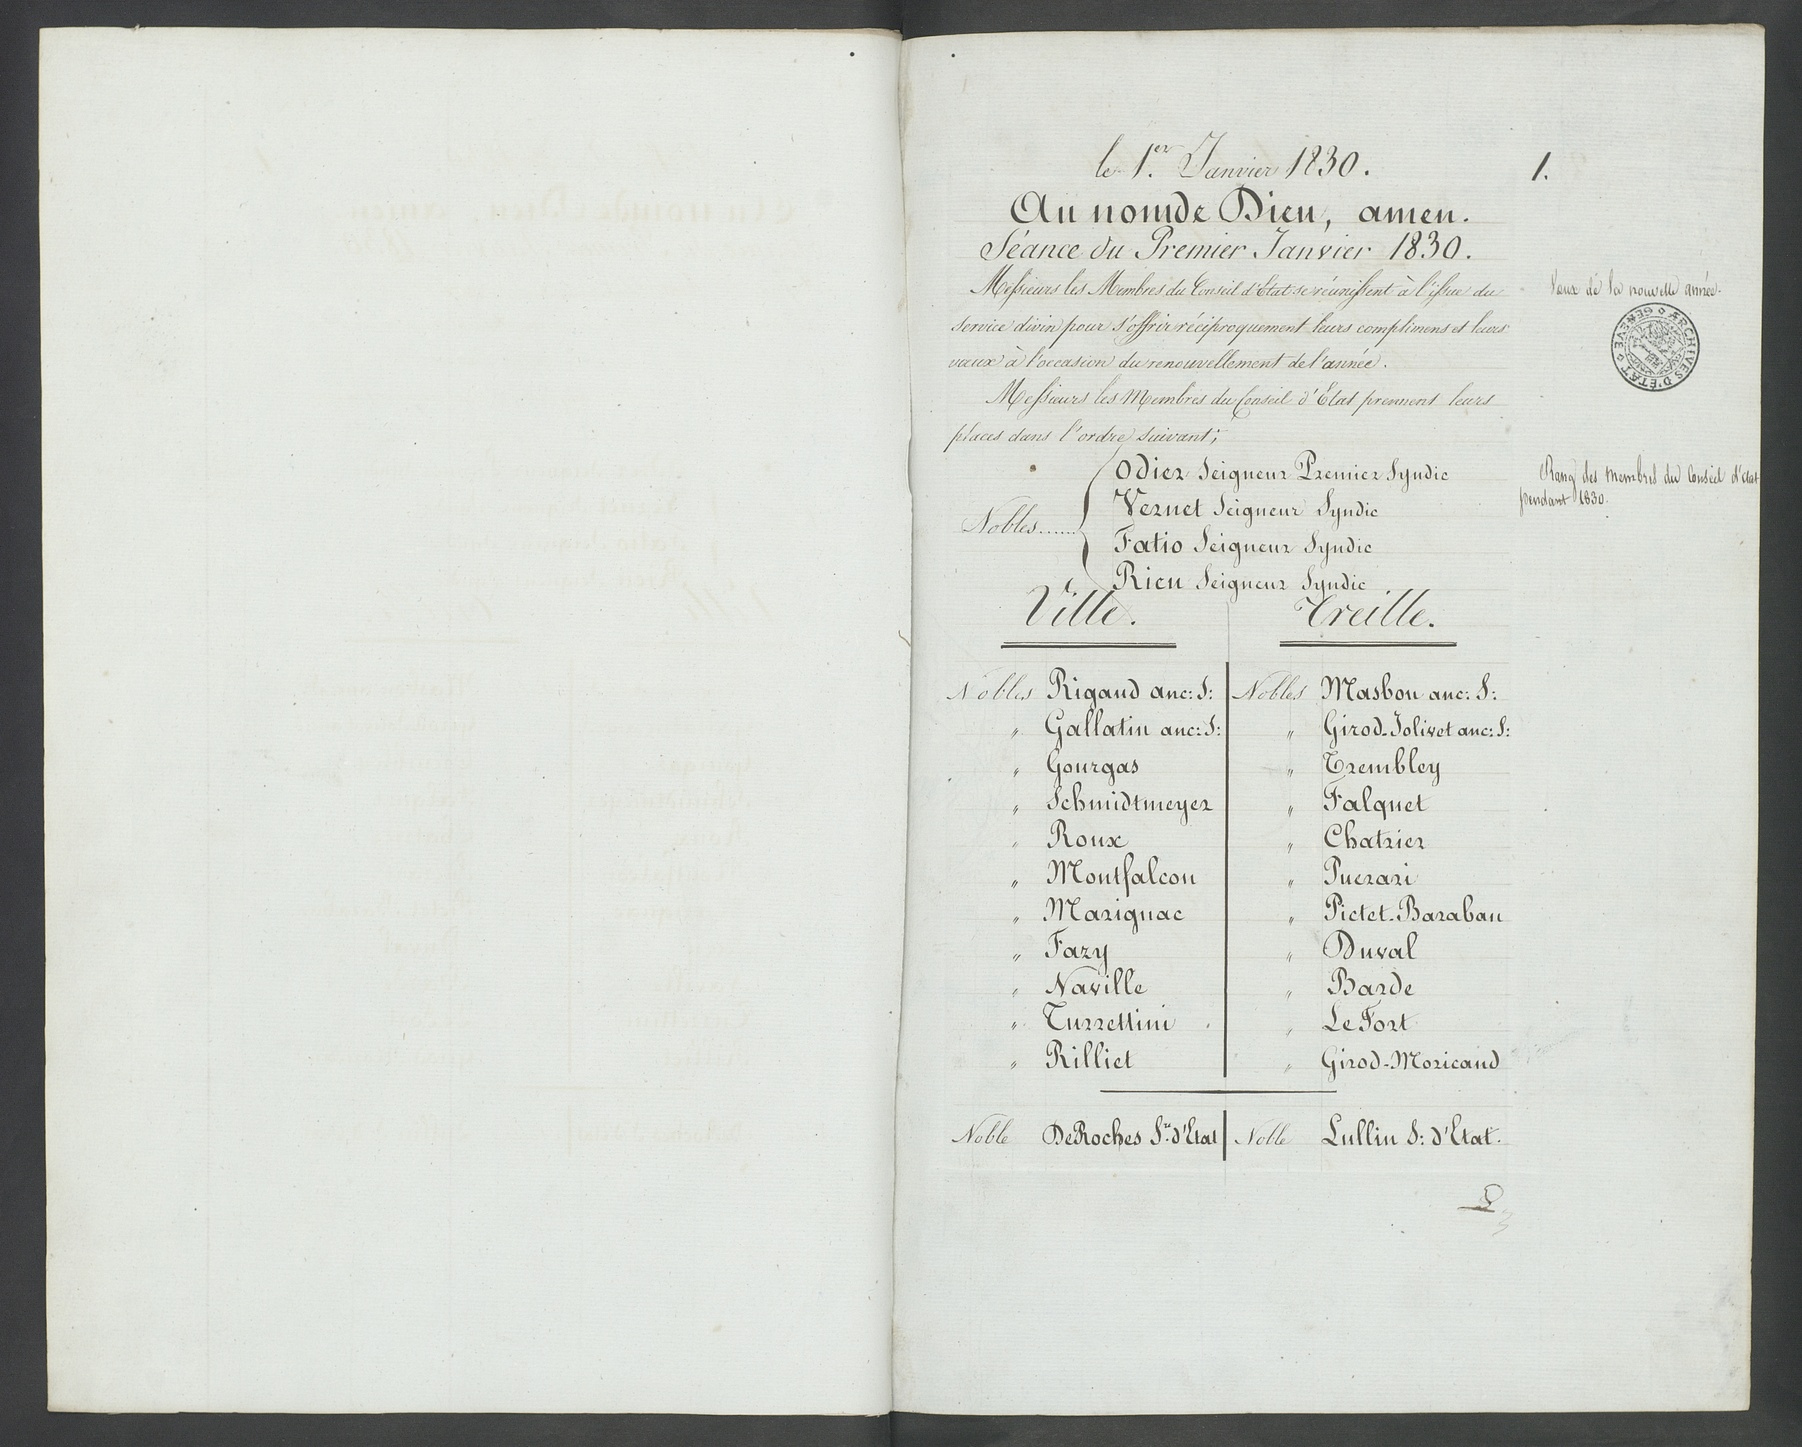 le 1.er Janvier 1830.
1.
Au nom de Dieu, amen.
Séance du Premier Janvier 1830.
Messieurs les Membres du Conseil d'Etat se réunissent à l'issue du
service divin pour s'offrir réciproquement leurs complimens et leurs
vœux à l'occasion du renouvellement de l'année.
Vœux de la nouvelle année.
ARCHIVES D'ÉTAT GENÈVE
Messieurs les Membres du Conseil d'Etat prennent leurs
places dans l'ordre suivant;
Rang des membres du Conseil d'Etat
pendant 1830.
Nobles......
Odier Seigneur Premier Syndic
Vernet Seigneur Syndic
Fatio Seigneur Syndic
Rieu Seigneur Syndic
Ville. Treille.
Nobles Rigaud anc: S: Nobles Masbou anc: S:
" Gallatin anc: S: " Girod-Jolivet anc: S:
" Gourgas " Trembley
" Schmidtmeyer " Falquet
" Roux " Chatrier
" Montfalcon " Puerari
" Marignac " Pictet-Baraban
" Fazy " Duval
" Naville " Barde
" Turrettini " Le Fort
" Rilliet " Girod-Moricand
Noble DeRoches S.re d'Etat Noble Lullin S: d'Etat.